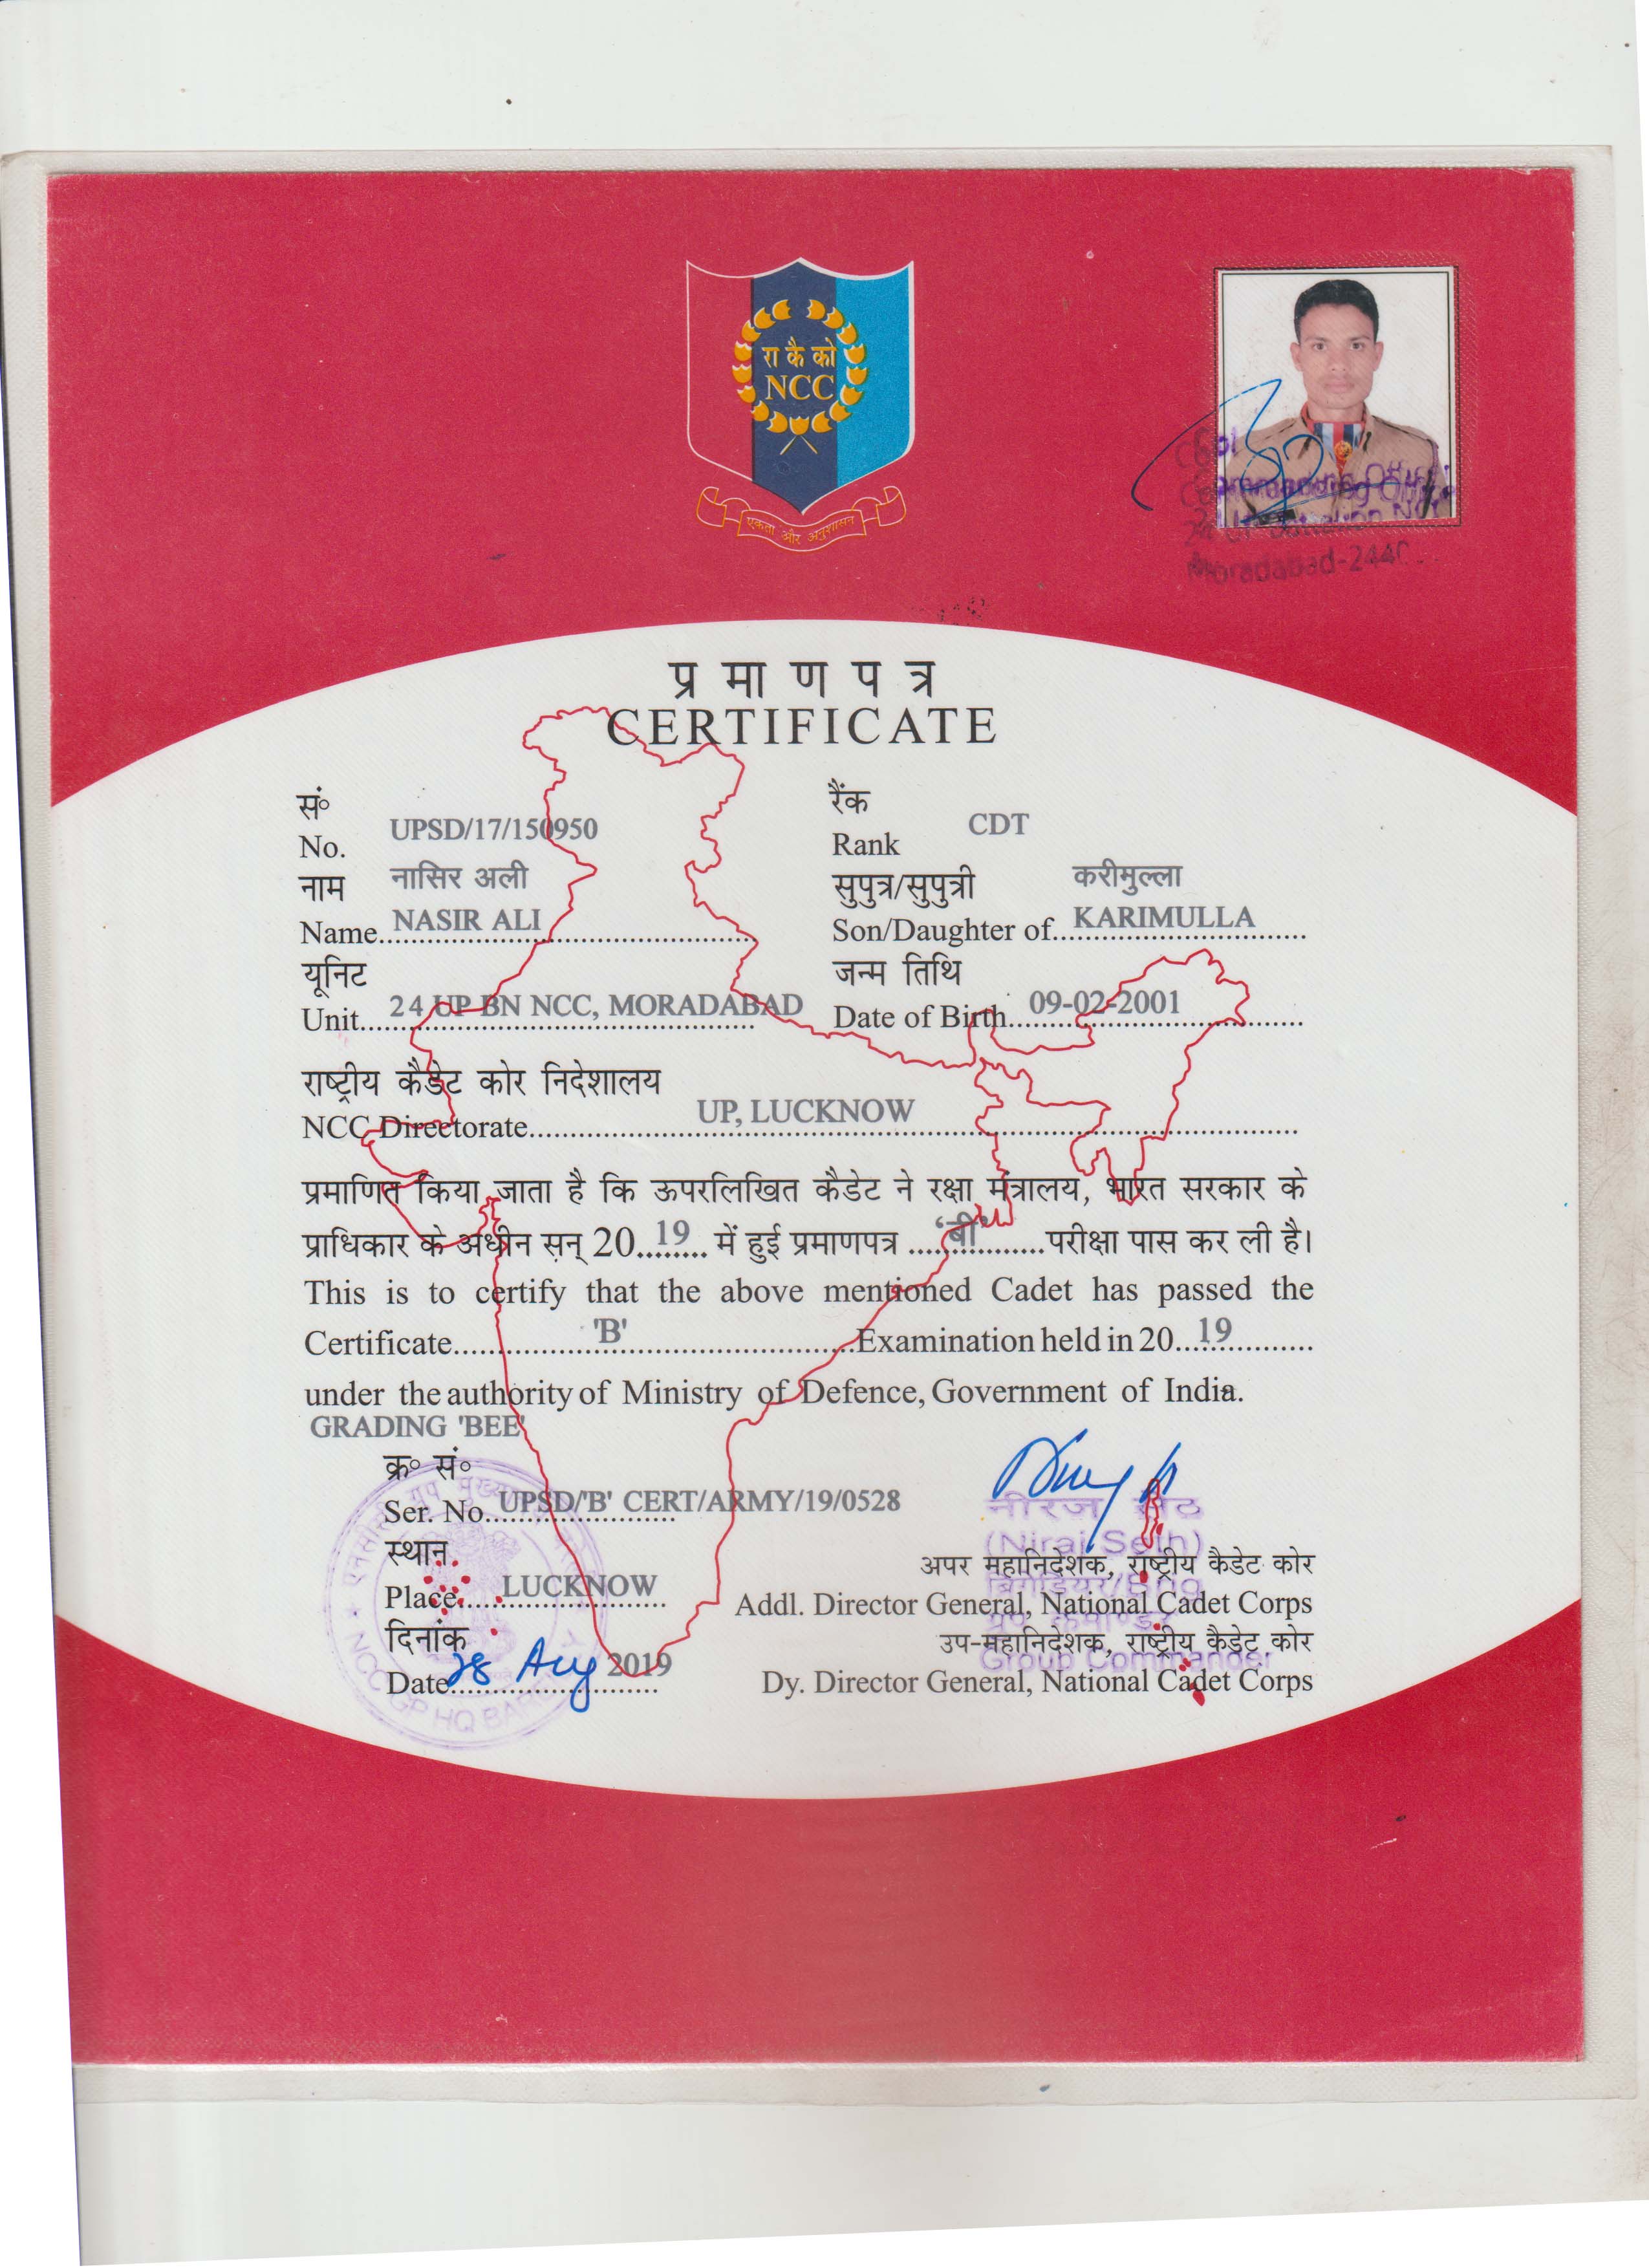 रा कै को
NCC
एकता और अनुशासन
Col
Commanding Officer
Moradabad-244
प्रमाणपत्र
CERTIFICATE
सं०
No. UPSD/17/150950
रैंक
Rank CDT
नाम नासिर अली
Name NASIR ALI
सुपुत्र/सुपुत्री करीमुल्ला
Son/Daughter of KARIMULLA
यूनिट
Unit 24 UP BN NCC, MORADABAD
जन्म तिथि
Date of Birth 09-02-2001
राष्ट्रीय कैडेट कोर निदेशालय
NCC Directorate UP, LUCKNOW
प्रमाणित किया जाता है कि ऊपरलिखित कैडेट ने रक्षा मंत्रालय, भारत सरकार के
प्राधिकार के अधीन सन् 20 19 में हुई प्रमाणपत्र 'बी' परीक्षा पास कर ली है।
This is to certify that the above mentioned Cadet has passed the
Certificate 'B' Examination held in 20 19
under the authority of Ministry of Defence, Government of India.
GRADING 'BEE'
क्र० सं०
Ser. No. UPSD/'B' CERT/ARMY/19/0528
स्थान
Place LUCKNOW
दिनांक
Date 28 Aug 2019
नीरज सेठ
(Niraj Seth)
ब्रिगेडियर/Brig
ग्रुप कमाण्डर
Group Commander
अपर महानिदेशक, राष्ट्रीय कैडेट कोर
Addl. Director General, National Cadet Corps
उप-महानिदेशक, राष्ट्रीय कैडेट कोर
Dy. Director General, National Cadet Corps
NCC GP HQ